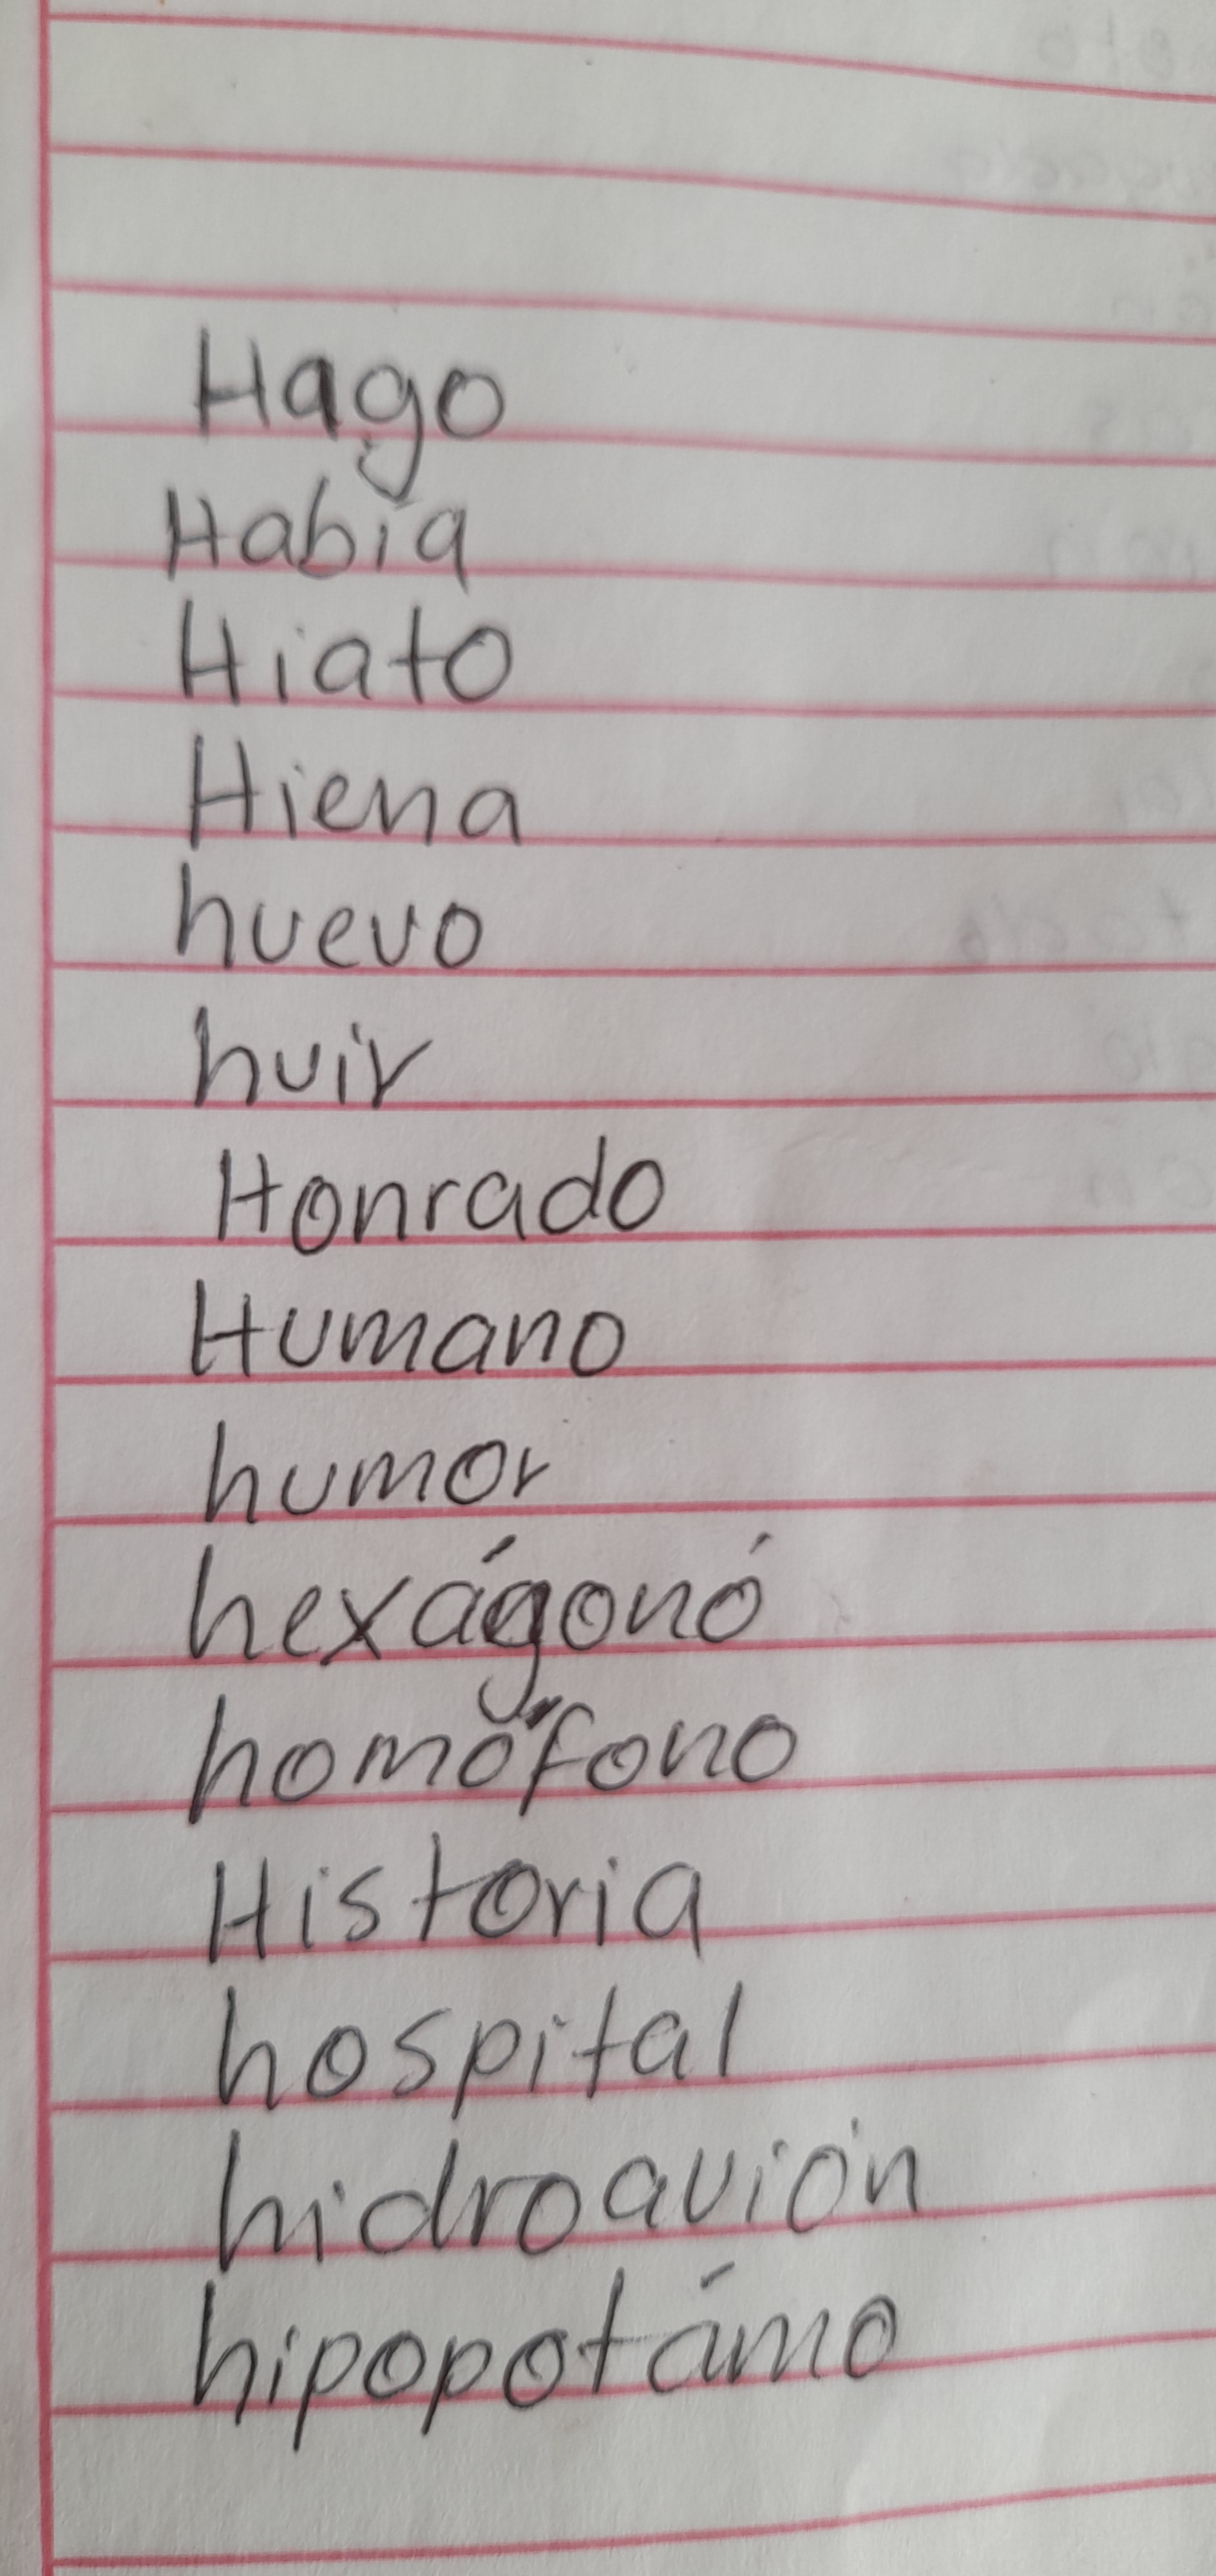 Hago
Habia
Hiato
Hiena
huevo
huir
Honrado
Humano
humor
hexágonó
homófono
Historia
hospital
hidroavión
hipopotámo